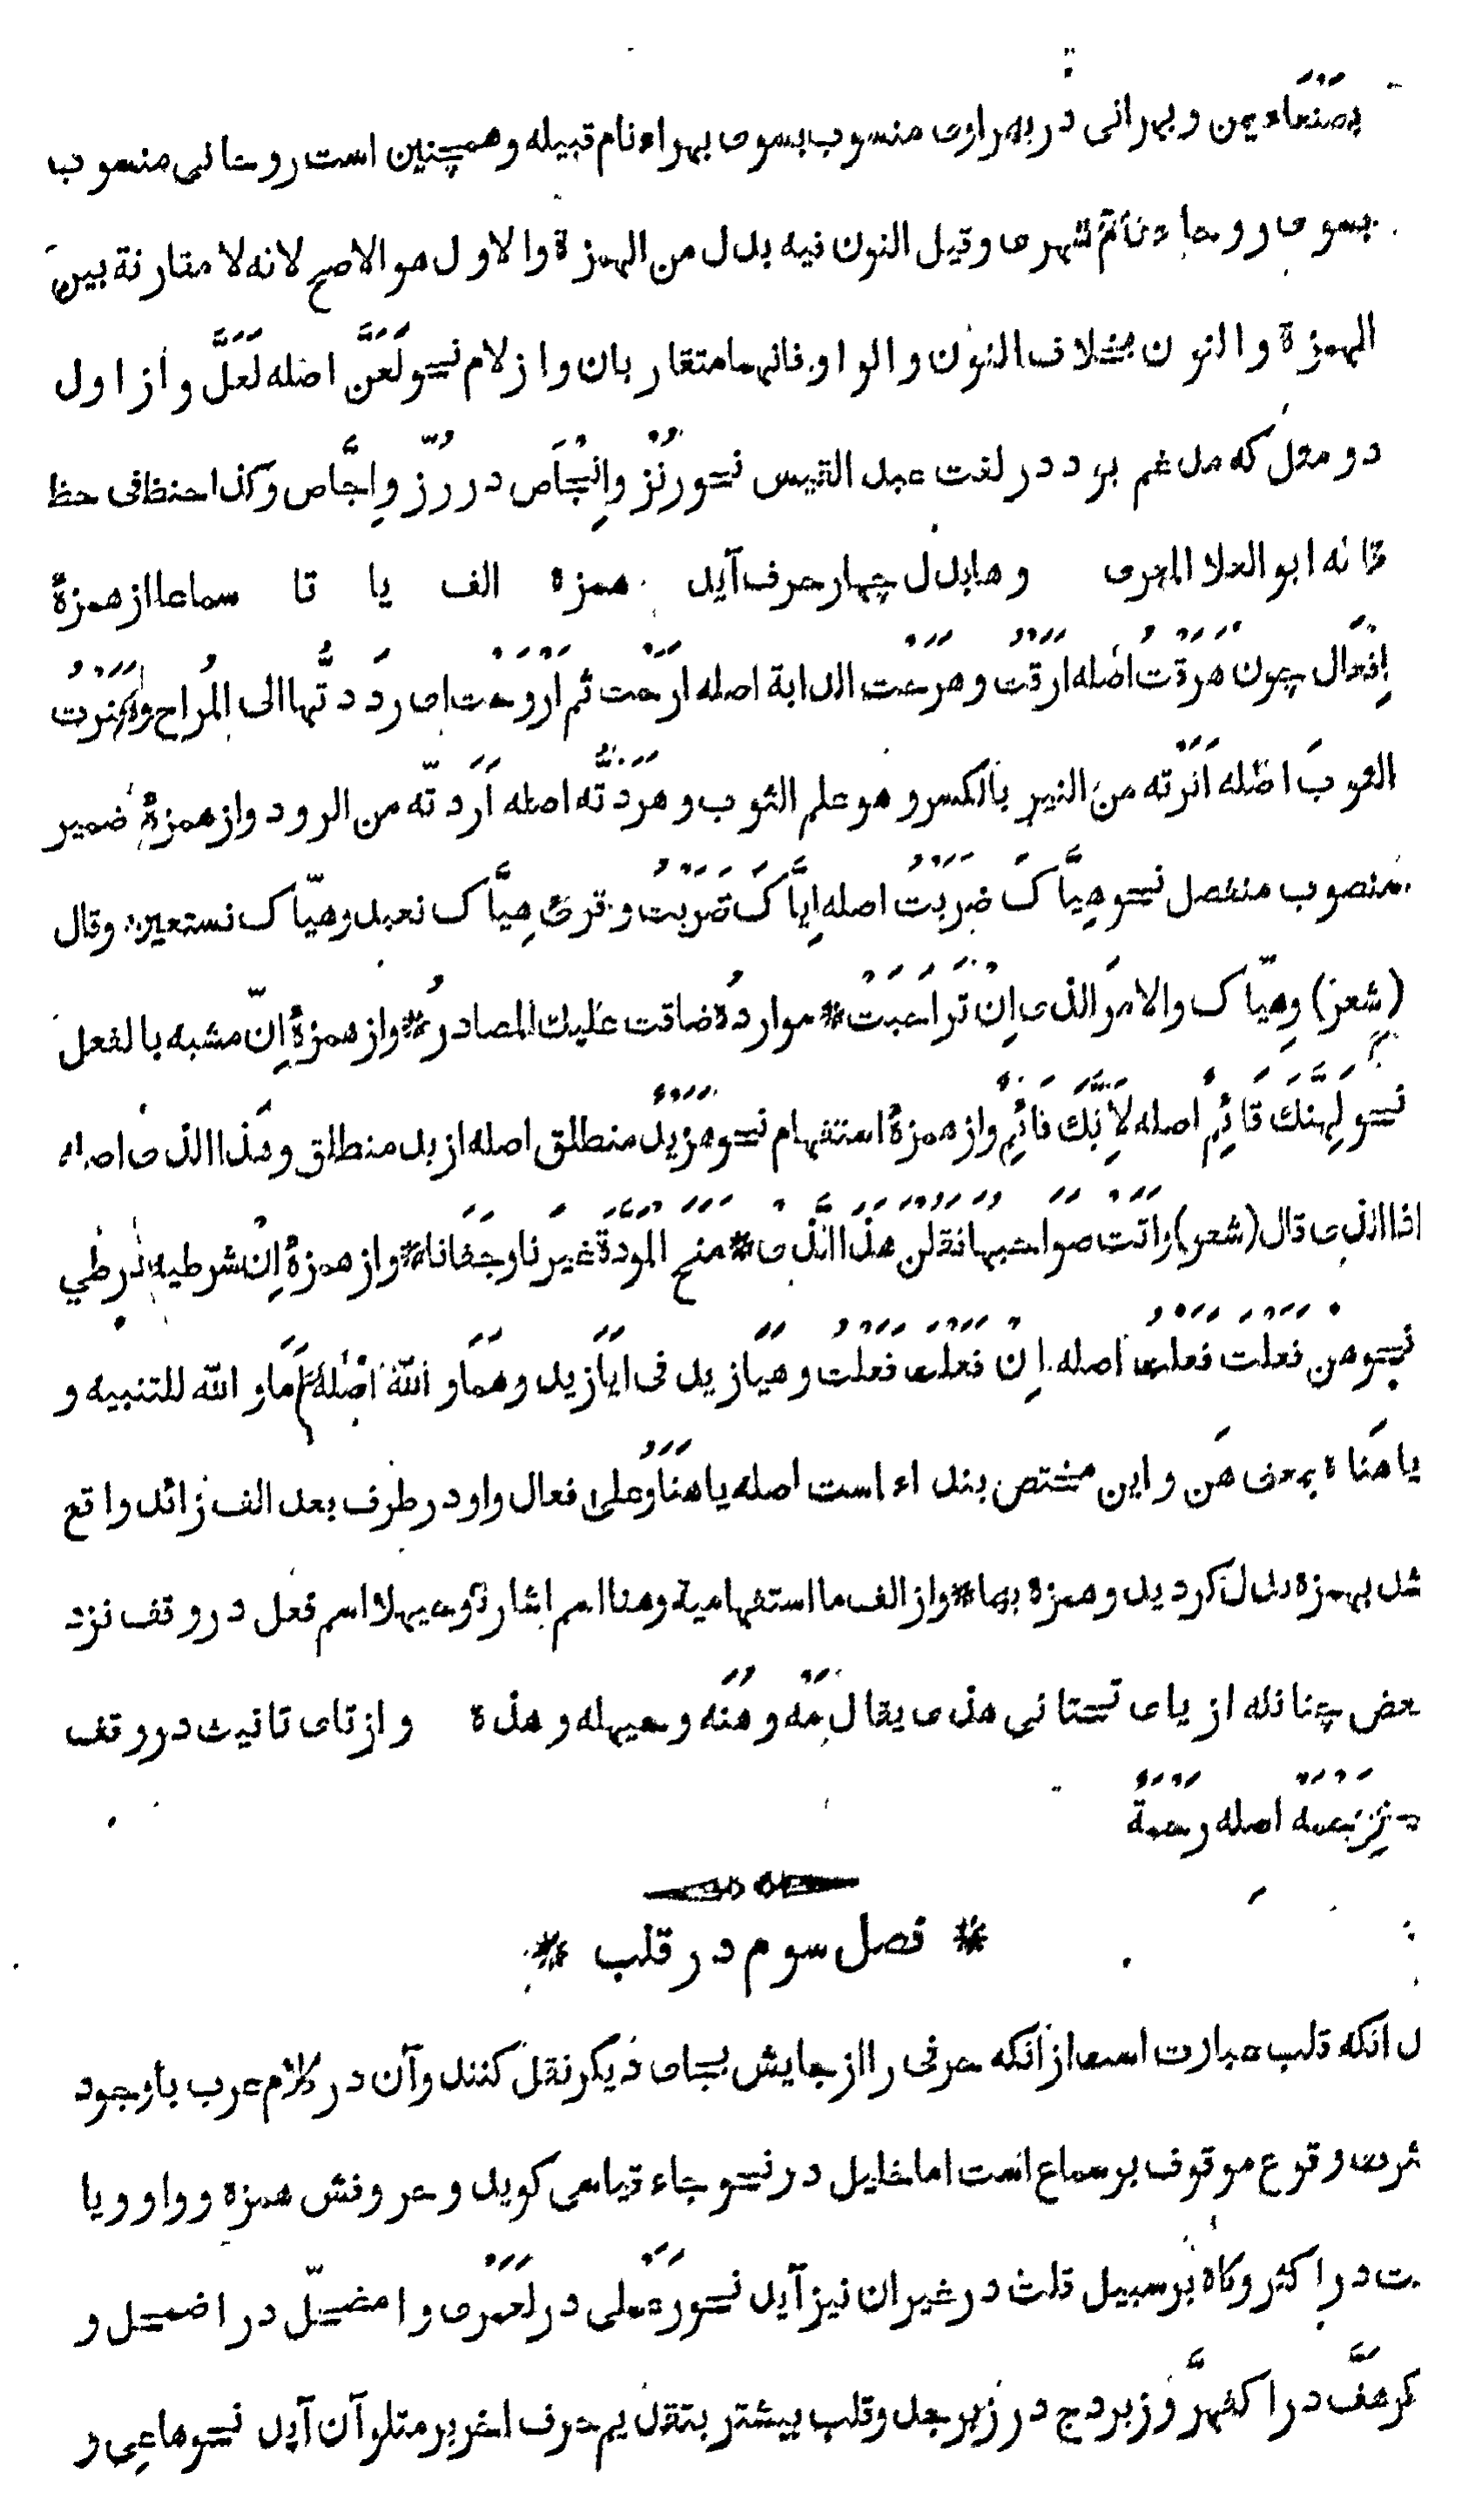 بصنعاء یمن و بهرانی در بهراوی منسوب بسوی بهراء نام قبیله و همچنین است روحانی منسوب
بسوی روحاء نام شهری و قیل النون فیه بدل من الهمزة والاول هو الاصح لانه لا مقارنة بین
الهمزة والنون بخلاف النون والواو فانهما متقاربان و از لام نحو لَعَنَّ اصله لَعَلَّ و از اول
دو مدل که مدغم بود در لغت عبد القیس نحو رُنْز و اِنْجَاص در رُزّ و اِجَّاص و کذا حنظ فی حظ
قاله ابو العلا المعری و ها بدل چهار حرف آید همزه الف یا تا سماعا از همزهٔ
اِفْعَال چون هَرَقْتُ اصله ارقت و هرحت الدابة اصله اَرَحْت ثم اَرْوَحت ای رددتها الی المُراح و هَنَرْتُ
الثوبَ اصله اَنَرْته من النیر بالکسر و هو علم الثوب و هَرَدتُّه اصله اَرَدتّه من الرود و از همزهٔ ضمیر
منصوب منفصل نحو هِیَّاکَ ضَرَبْتُ اصله اِیَّاکَ ضَرَبْتُ و قرئ هِیَّاک نعبد و هیّاک نستعین و قال
(شعر) وهیّاک والامرَ الذی اِنْ تراحبت * مواردُهُ ضاقت علیك المصادرُ * و از همزهٔ اِنّ مشبه بالفعل
نحو لَهِنَّكَ قَائِمٌ اصله لَاِنَّكَ قَائِمٌ و از همزهٔ استفهام نحو هَزَیْدٌ منطلق اصله ازید منطلق و هذا الذی اصله
اذا الذی قال (شعر) وَاَتَتْ صَوَاحِبُهَا فَقُلْنَ هَذَا الَّذِی * منح المودةَ غیرنا وجفانا * و از همزهٔ اِنْ شرطیه در طی
نحو هِن فعلتَ فعلتُ اصله اِن فعلتَ فعلتُ و هَیَا زید فی اَیَا زید و هَمَا و الله اصله اَمَا و الله للتنبیه و
یا هَنَاه بمعنی هَن و این مختص بنداء است اصله یا هَنَاوُ علی فعال واو در طرف بعد الف زائد واقع
شد بهمزه بدل کردید و همزه بها * و از الف ما استفهامیة و هنا اسم اشارة و حیهلا اسم فعل در وقف نزد
بعض چنانکه از یای تحتانی هذی یقال مَهْ و هُنَه و حیهله و هذه و از تای تانیث در وقف
رَحْمَهْ اصله رَحْمَةٌ
* فصل سوم در قلب *
انکه قلب عبارت است از انکه حرفی را از جایش بجای دیکر نقل کنند و آن در کلام عرب باوجود
وقوع موقوف بر سماع است اما خلیل در نحو جاء قیاسی کوید و حروفش همزه و واو و یا
ست در اکثر و کاه بر سبیل قلت در غیران نیز آید نحو رَعَمْلی در لَعَمْری و امضحلّ در اضمحل و
اکرهفّ در اکفهرَّ و زبردج در زبرجد و قلب بیشتر بتقدیم حرف اخیر بر متلو آن آید نحو هاعی و